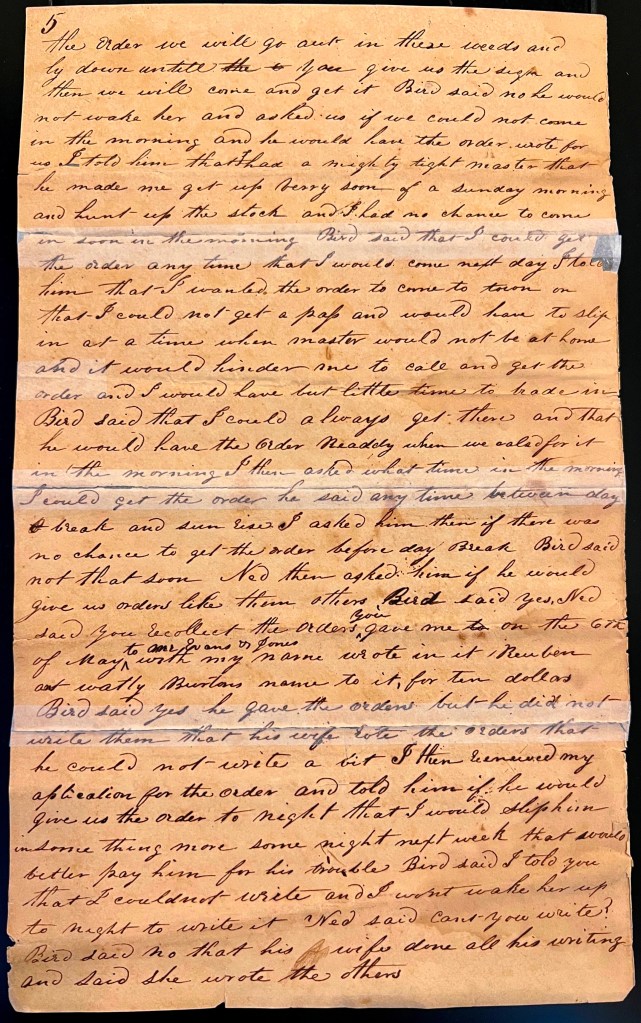 5
the order we will go out in these weeds and
ly down untill the t you give us the sign and
then we will come and get it Bird said no he would
not wake her and asked us if we could not come
in the morning and he would have the order wrote for
us I told him that I had a mighty tight master that
he made me get up verry soon of a sunday morning
and hunt up the stock and I had no chance to come
in soon in the morning Bird said that I could get
the order any time that I would come next day I told
him that I wanted the order to come to town on
that I could not get a pass and would have to slip
in at a time when master would not be at home
and it would hinder me to call and get the
order and I would have but little time to trade in
Bird said that I could always get there and that
he would have the order readdy when we caled for it
in the morning I then asked what time in the morning
I could get the order he said any time between day
break and sun rise I asked him then if there was
no chance to get the order before day break Bird said
not that soon Ned then asked him if he would
give us orders like them others Bird said yes, Ned
said you recollect the orders you gave me to on the 6th
of May to mr Evans & Jones with my name wrote in it Reuben
and watly Burtons name to it, for ten dollars
Bird said yes he gave the orders but he did not
write them that his wife rote the orders that
he could not write a bit I then renewed my
aplication for the order and told him if he would
give us the order to night that I would slip him
in some thing more some night next week that would
better pay him for his trouble Bird said I told you
that I could not write and I wont wake her up
to night to write it Ned said cant you write?
Bird said no that his wife done all his writing
and said she wrote the others